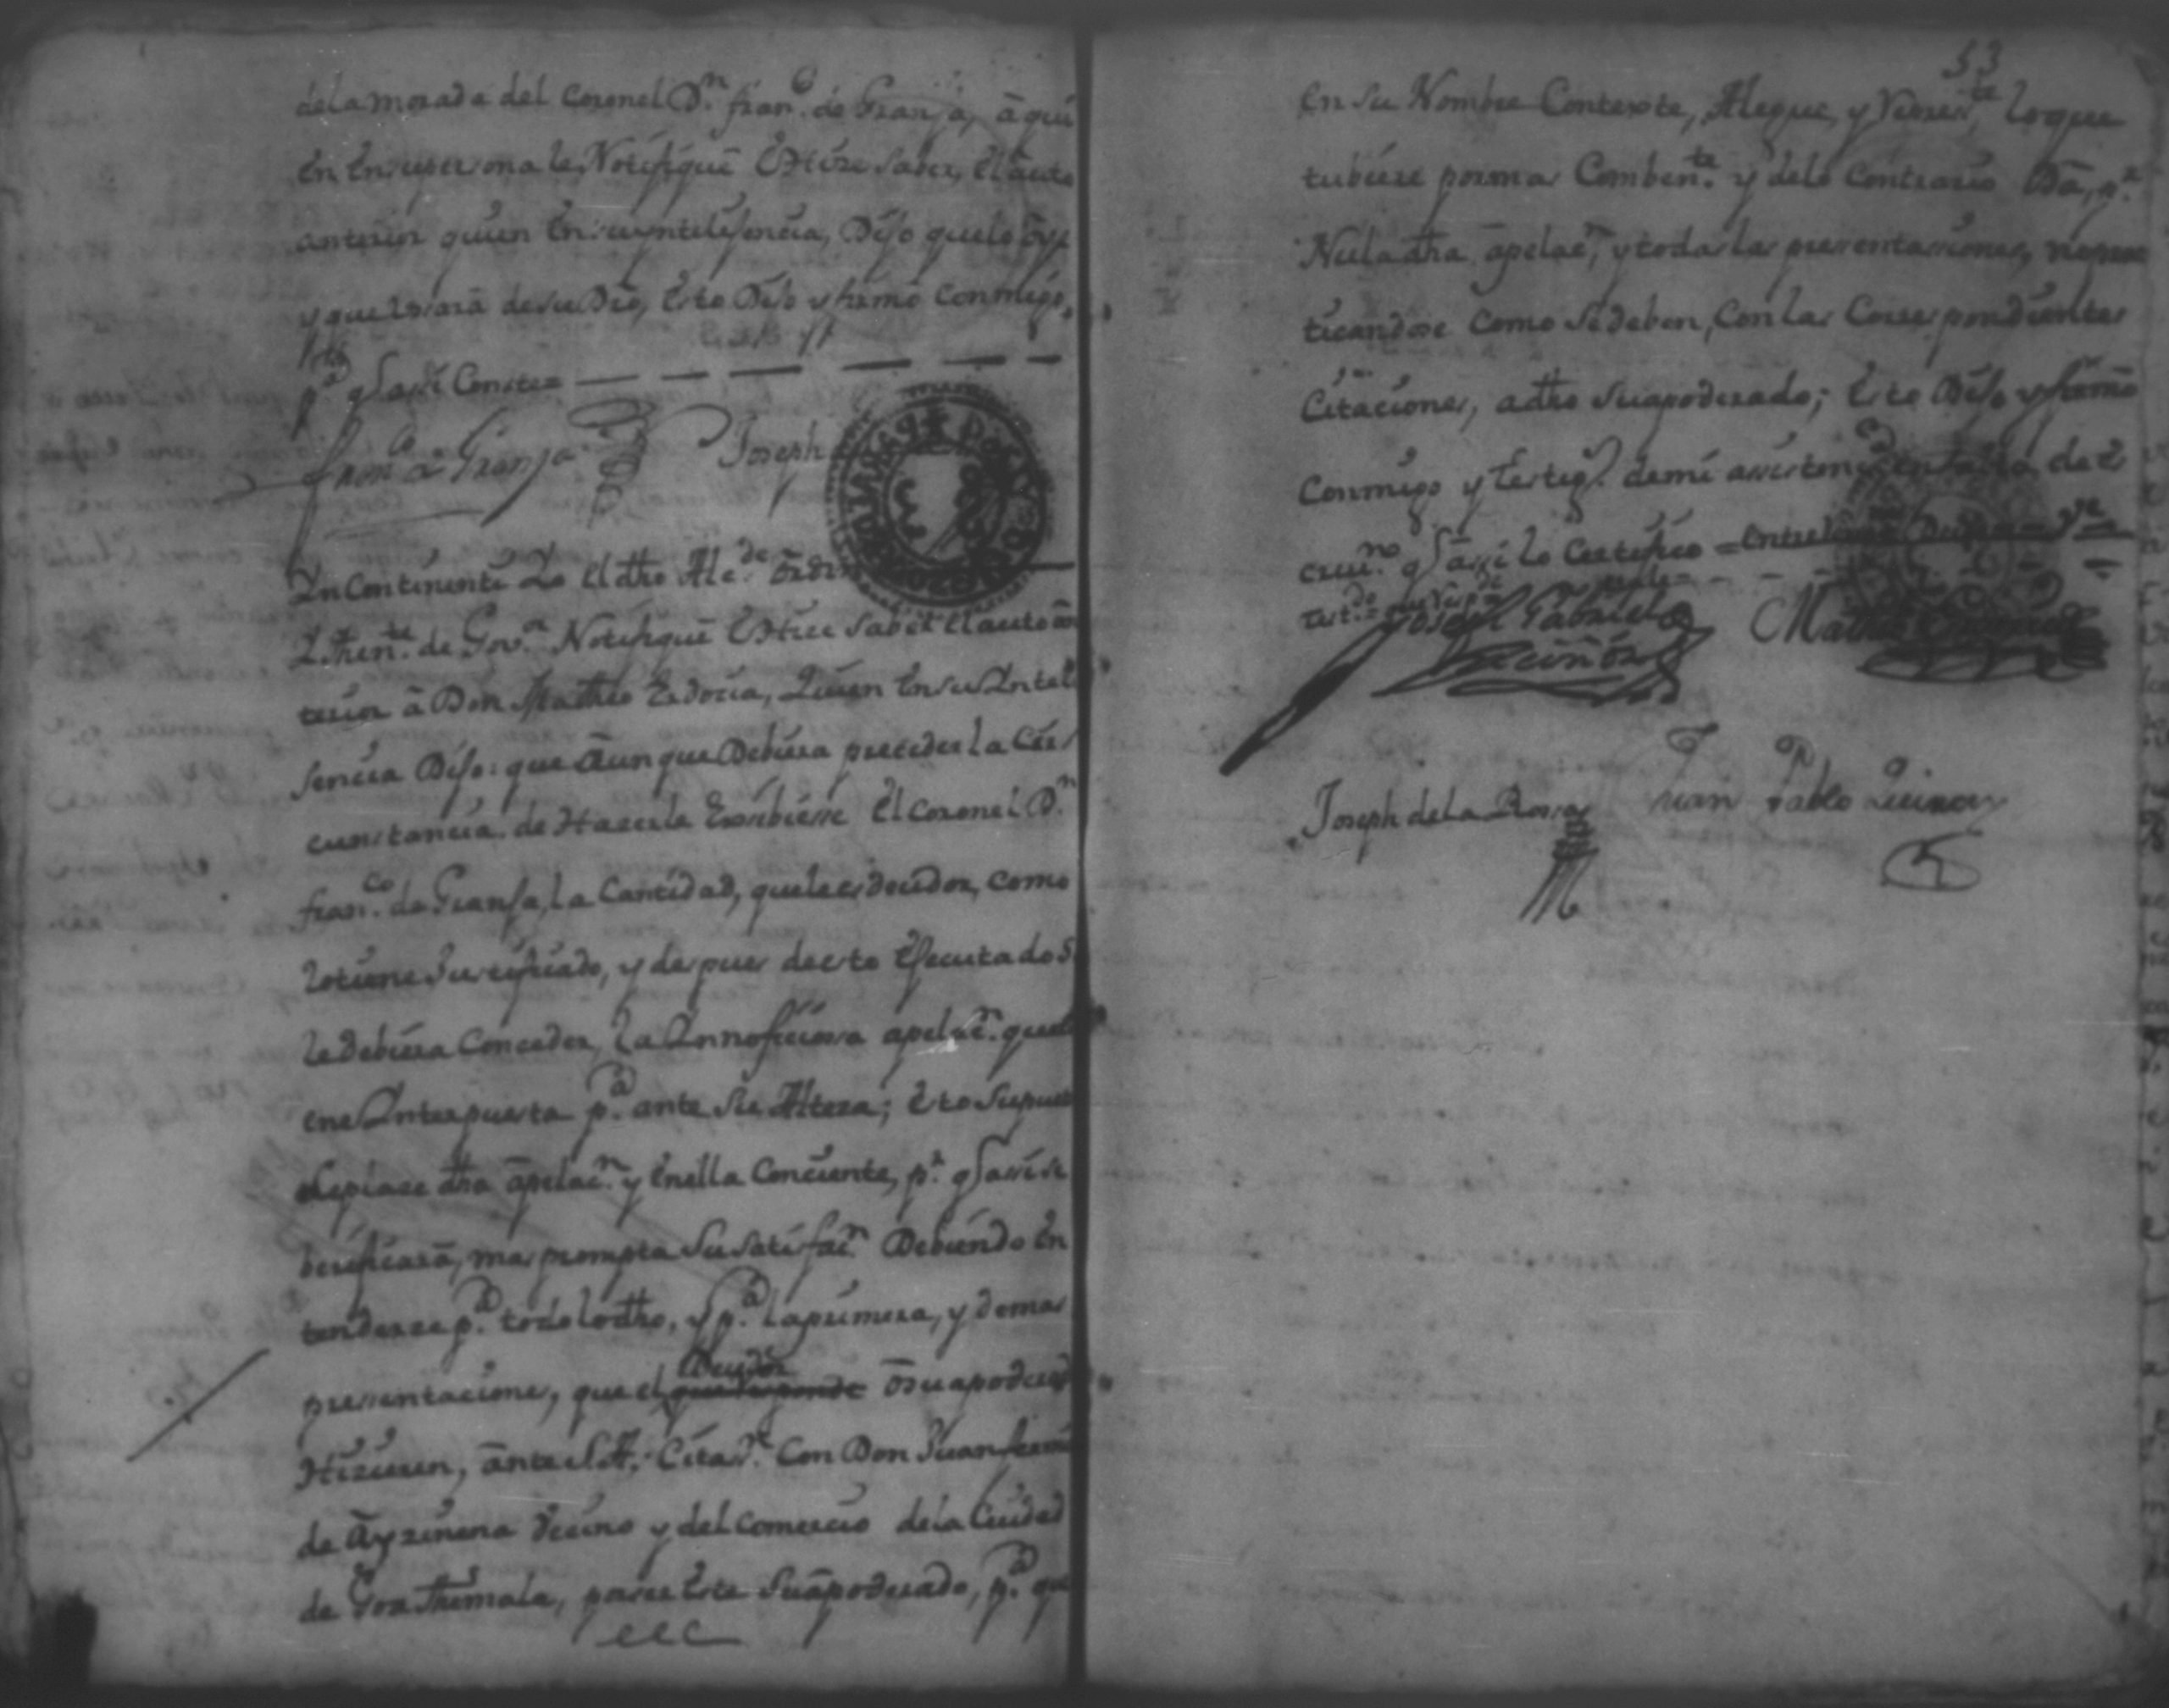 dela morada del Coronel Dn. franco. de Granja, â qui
en En supersona le Notifiquê E Hize saver, El auto
anterior quien En su yntelijencia, Dijo que lo oye
y que Usará de su Dro, Esto Dijo y firmô Conmigo,
pa. q asi Conste=
franco. de Granja Joseph
Yn Continenti Yo El dho Alcde. ordi
Y Thente. de Govor. Notifiquê E Hice saver El auto an
terior â Don Matheo Exdoria, Quien En su Yntel
jencia Dijo: que Aunque Debiera preceder la Cir
cunstancia de Hazerle Exsibiesse El Coronel Dn.
franco. de Granja, la Cantidad, que le es deudor, como
lo tiene Justificado, y despues de esto Ejecutado S
le debiera Conceder, la Ynnoficiossa apelacn. que
ene Ynterpuesta pa. ante Su Alteza; Esto Supues
dha apelacn. y Enella Conciente, pa. q assi se
berificara, mas prompta Su Satisfacn. Debiendo En
tenderse pa. todo lo dho, y pa. la primera, y demas
pressentaciones, que el Deudor que responde ô su apoderad
Hizieren, ante S. A. Citase. Con Don Juan fermi
de Ayzinena Vecino y del Comercio de la Ciudad
de Goathemala, por ser Este Su apoderado, pa. que
53
En su Nombre Contexte, Alegue, y lo que
tubiere por mas Combente. y de lo Contrario
Nula dha apelacn, y todas las pressentassiones, no prac
ticandose Como se deben, Con las Correspondientes
Citaciones, a dho su apoderado; Esto Dijo y firmô
Conmigo y Testigs. de mi assistencia En falta de Es
crivno. q assi lo Certifico = Entre Deudor = Ve
Testdo.= que responde
Joseph Gabriel
Matheo
Joseph de la Rossa Juan Pablo Quiñones